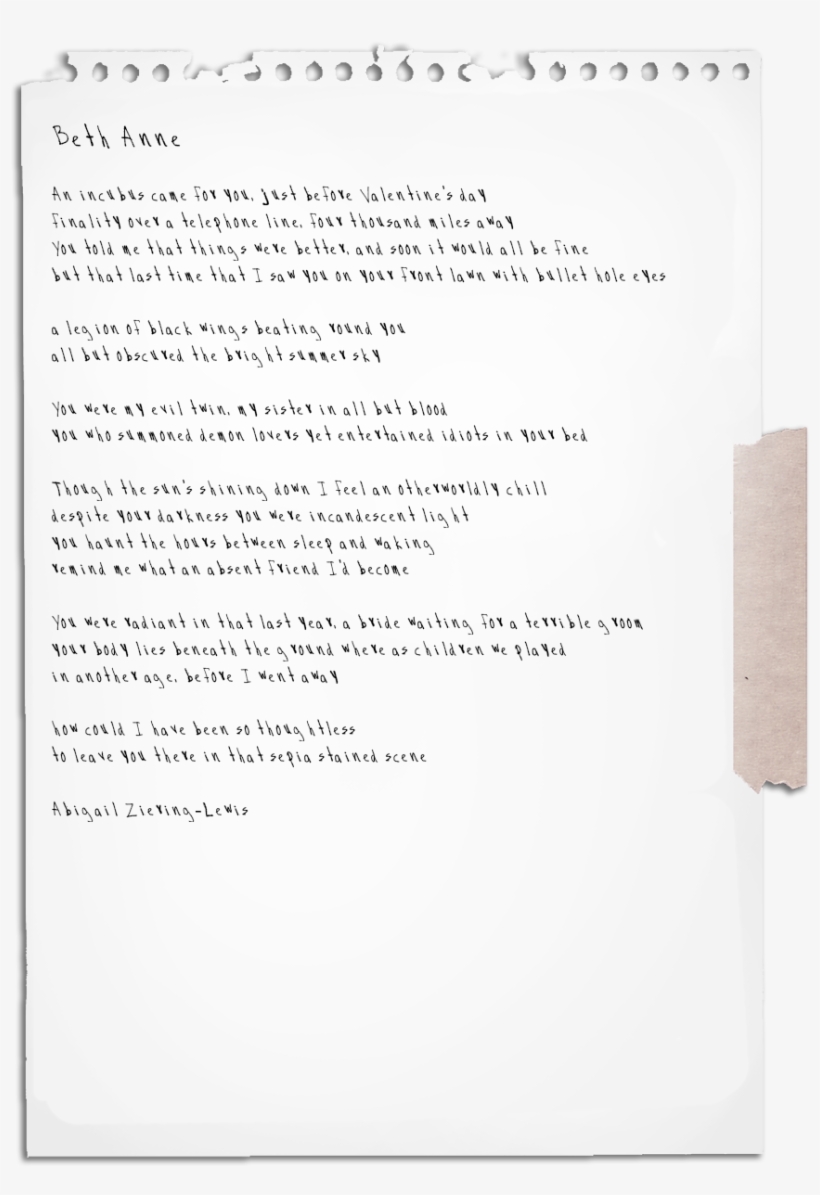 Beth Anne
An incubus came for you, just before Valentine's day
finality over a telephone line, four thousand miles away
You told me that things were better, and soon it would all be fine
but that last time that I saw you on your front lawn with bullet hole eyes
a legion of black wings beating round you
all but obscured the bright summer sky
You were my evil twin, my sister in all but blood
you who summoned demon lovers yet entertained idiots in your bed
Though the sun's shining down I feel an otherworldly chill
despite your darkness you were incandescent light
you haunt the hours between sleep and waking
remind me what an absent friend I'd become
You were radiant in that last year, a bride waiting for a terrible groom
your body lies beneath the ground where as children we played
in another age, before I went away
how could I have been so thoughtless
to leave you there in that sepia stained scene
Abigail Ziering-Lewis